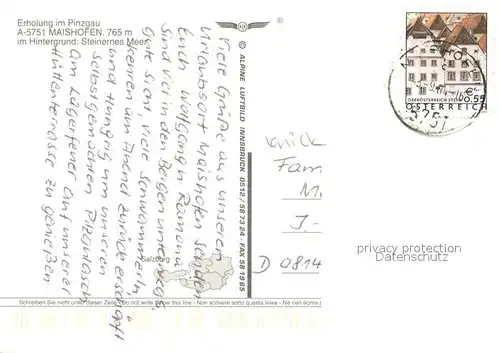 Erholung im Pinzgau
A-5751 MAISHOFEN, 765 m
im Hintergrund: Steinernes Meer
Viele Grüße aus unserem
Urlaubsort Maishofen senden
Euch Wolfgang u. Ramona
Sind viel in den Bergen unterwegs,
Gute Sicht, viele Schwammerln,
kehren am Abend zurück
und hungrig um unseren
selbstgemachten
am Lagerfeuer auf unserer
Hüttenterrasse zu genießen
© ALPINE LUFTBILD INNSBRUCK 0512 / 58 73 24 - FAX 58 19 85
Salzburg
Schreiben Sie nicht unter dieser Zeile / Do not write below this line - Non scrivere sotto questa linea - Ne rien écrire
€ 0.55
OBERÖSTERREICH STEYR
ÖSTERREICH
5751
Fam
M.
J.
D 0814
privacy protection
Datenschutz